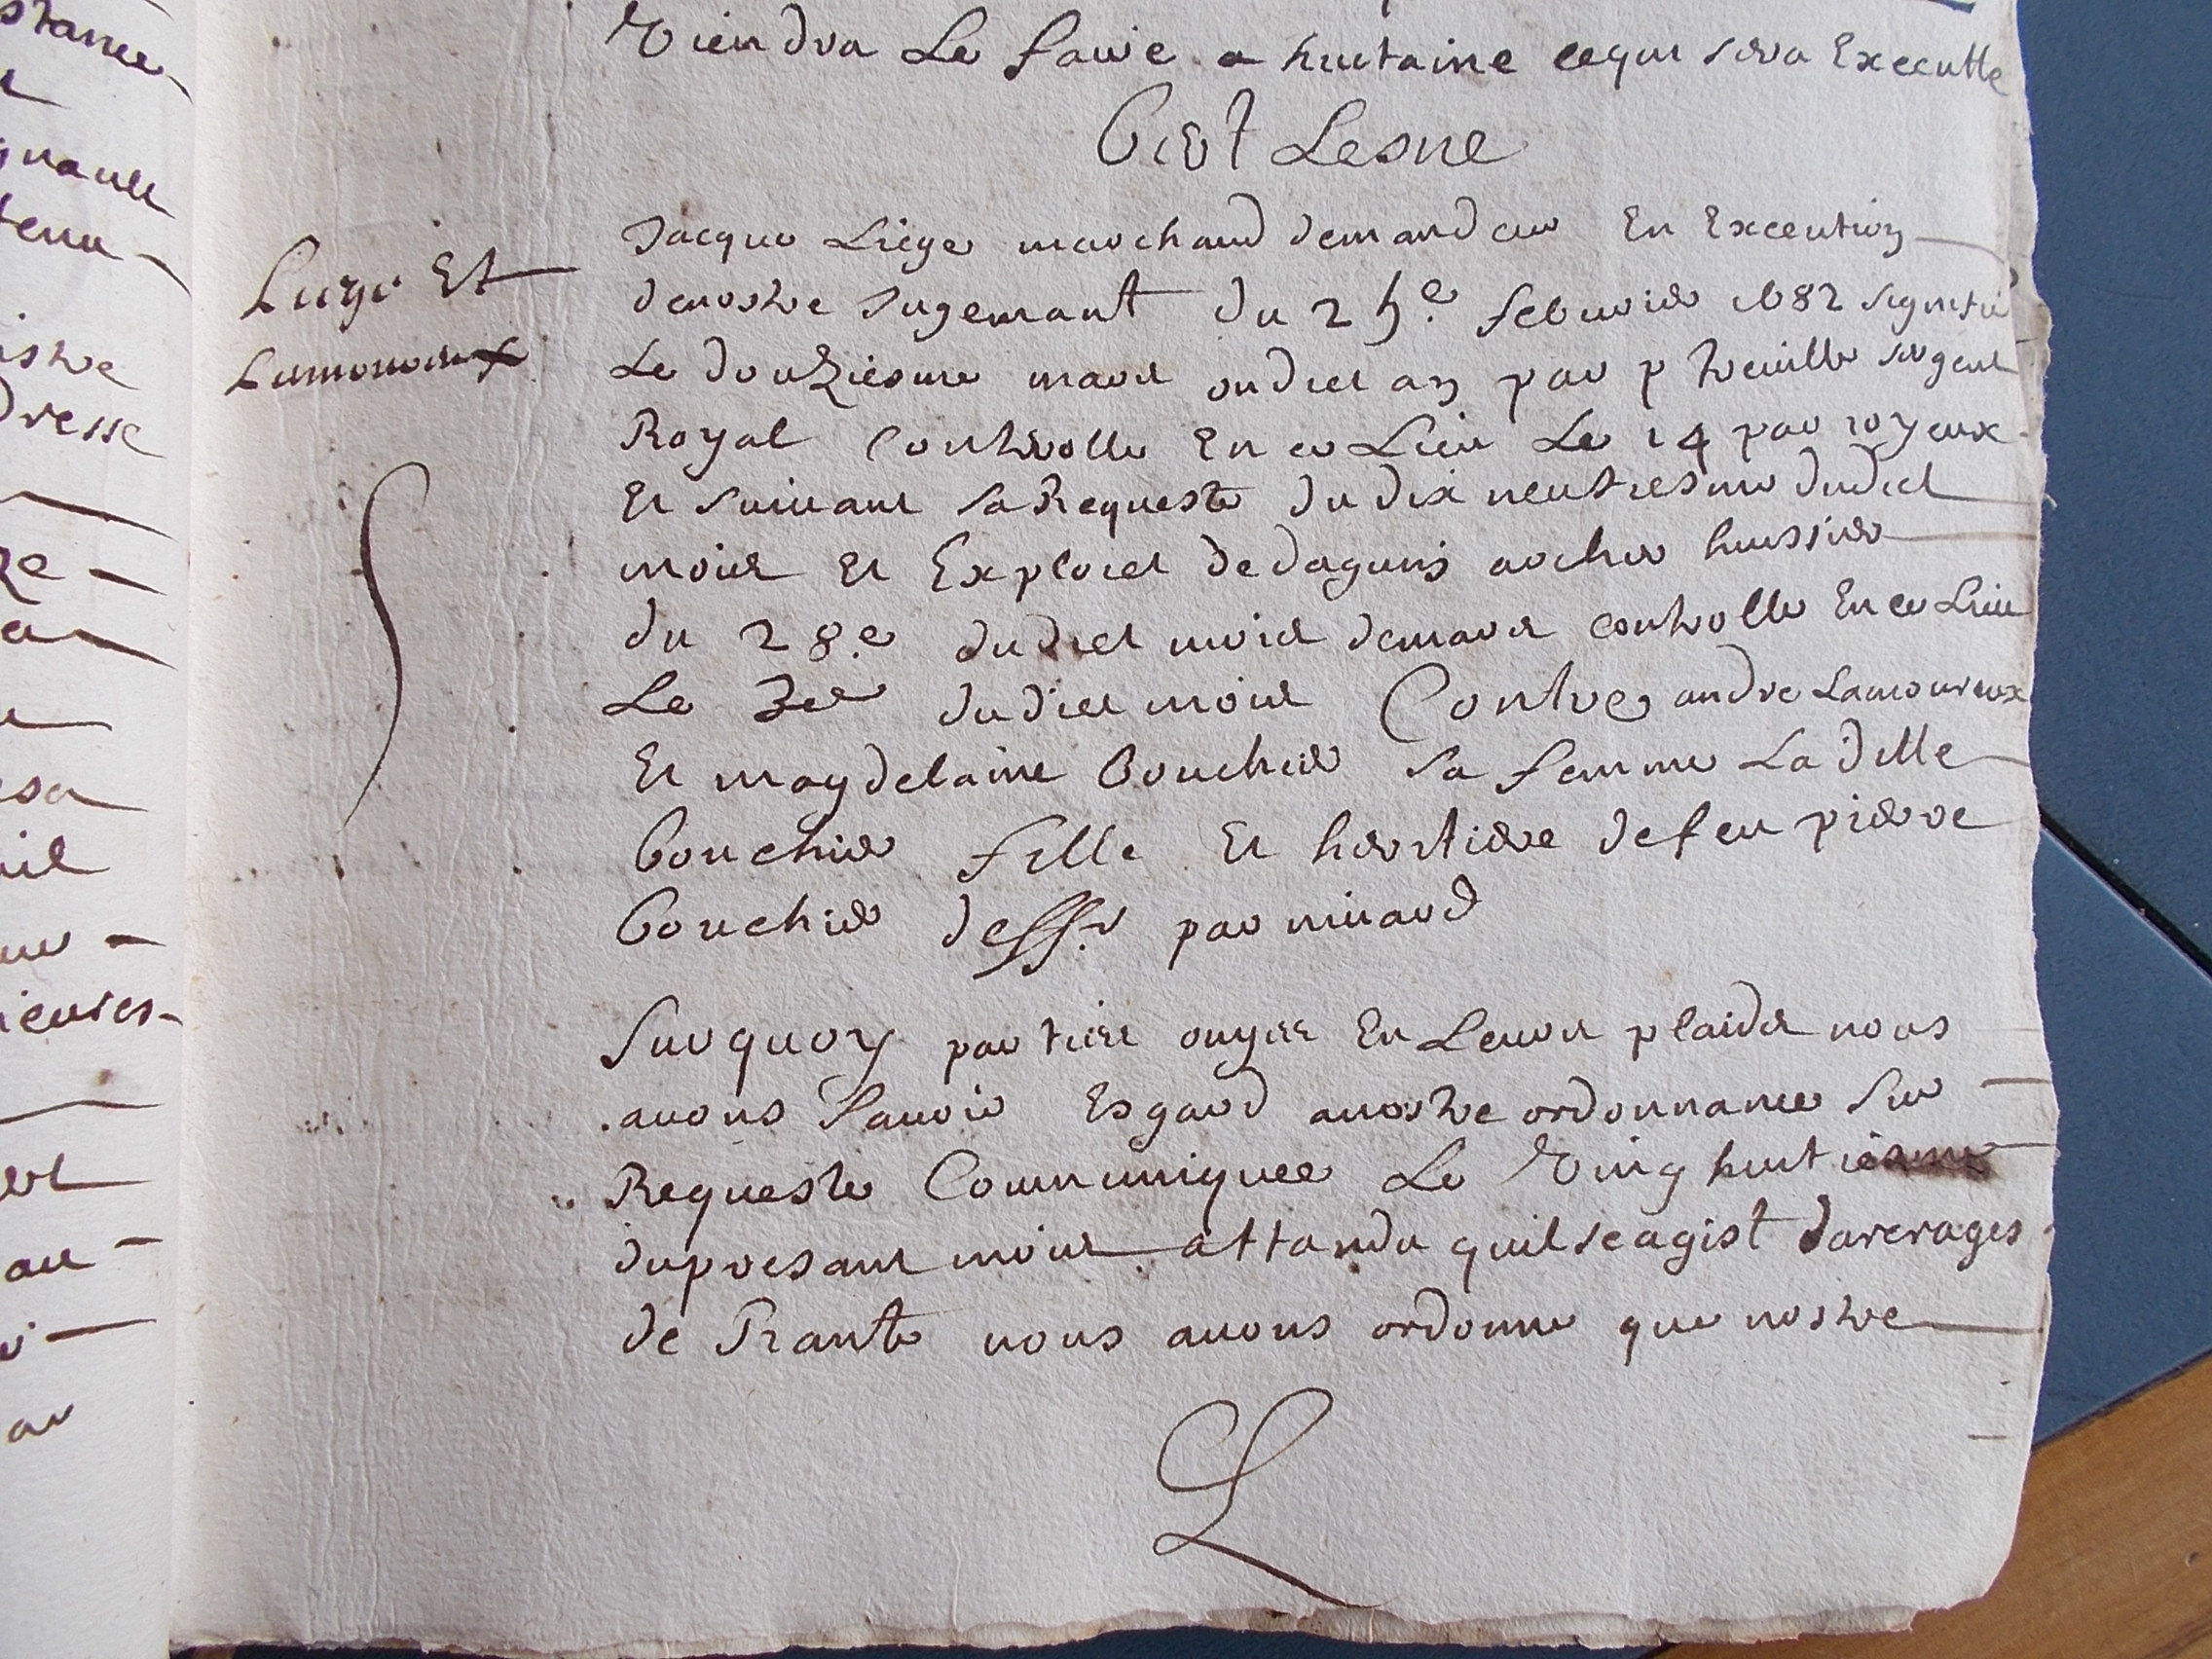 viendra Le faire a huictaine ce qui sera Executté
Piot Lesne
Liege Et
Lamoureux
Jacque Liége marchand demandeur En Execution
de nostre Jugemant du 25.e febvrier 1682 signiffié
Le douziesme mars ondict an par p treuille sergent
Royal Controllé En ce Lieu Le 14 par royeux
Et suivant sa Requeste du dix neufiesme dudict
mois Et Exploict de daguin archer huissier
du 28.e dudict mois de mars controllé En ce Lieu
Le 3e dudict mois Contre andre Lamoureux
Et magdelaine bouchier sa femme La dicte
bouchier fille Et herritiere de feu pierre
bouchier deffr par minard
Sur quoy parties ouyes En Leurs plaidés nous
avons sauoir Esgard a nostre ordonnance sur
Requeste Communiquée Le vingt huictiesme
du presant mois attandu quil seagist darerages
de Rante nous avons ordonné que nostre
L
stance
tenu
istre
dresse